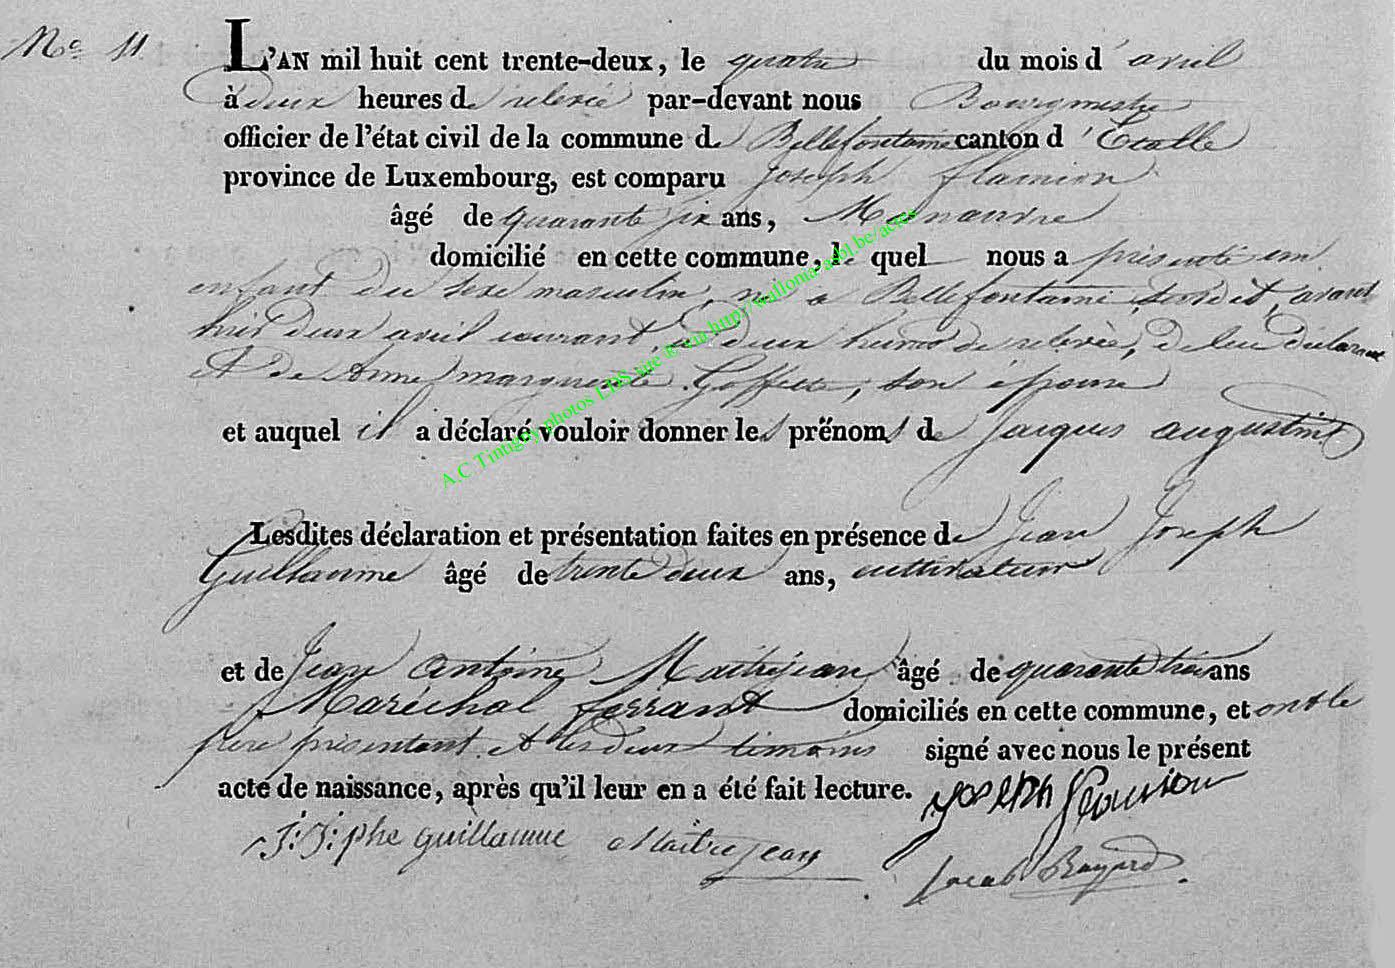 No 11
L'AN mil huit cent trente-deux, le quatre du mois d'avril
à deux heures de relevée par-devant nous Bourgmestre
officier de l'état civil de la commune de Bellefontaine canton d'Etalle
province de Luxembourg, est comparu Joseph flamion
âgé de quarante six ans, Manœuvre
domicilié en cette commune, le quel nous a présenté un
enfant du sexe masculin, né a Bellefontaine, avant
hier deux avril courant, a deux heures de relevée, de lui déclarant
et de Anne marguerite Goffette, son épouse
et auquel il a déclaré vouloir donner les prënoms de jacques augustin
Lesdites déclaration et présentation faites en présence de Jean Joseph
Guillaume âgé de trente deux ans, cultivateur
et de Jean Antoine Maitrejean âgé de quarante trois ans
Maréchal ferrant domiciliés en cette commune, et ont le
père présentant et les deux témoins signé avec nous le présent
acte de naissance, après qu'il leur en a été fait lecture. joseph flamion
J: J: phe guillaume Maitrejean Jacob
A.C Tintigny photos LDS site & via http://wallonia-asbl.be/actes